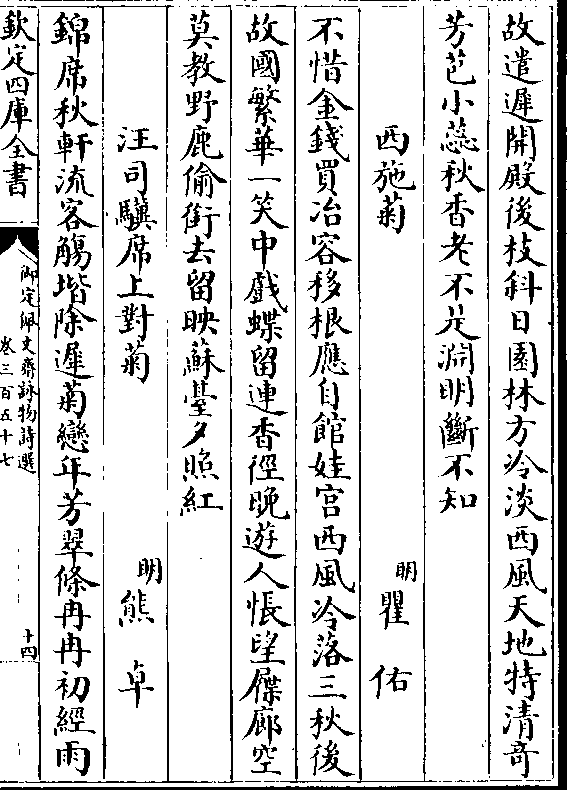 故遣遲開殿後枝斜日園林方冷淡西風天地特清奇
芳苞小蕊秋香老不是淵明斷不知
西施菊 明 瞿佑
不惜金錢買冶容移根應自館娃宫西風冷落三秋後
故國繁華一笑中戲蝶留連香徑晚遊人悵望屧廊空
莫教野鹿偷銜去留映蘇臺夕照紅
汪司驥席上對菊 明 熊卓
錦席秋軒流客觴堦除遲菊戀年芳翠條冉冉初經雨
欽定四庫全書
御定佩文齋詠物詩選
卷三百五十七
十四